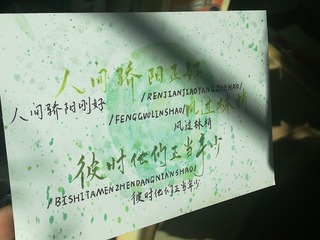 人间骄阳正好
人间骄阳刚好
/RENJIANJIAOYANGZHEHAO/
/FENGGUOLINSHAO/
风过林梢
风过林梢
彼时他们正当年少
/BISHITAMENZHENDANGNIANSHAO/
彼时他们正当年少